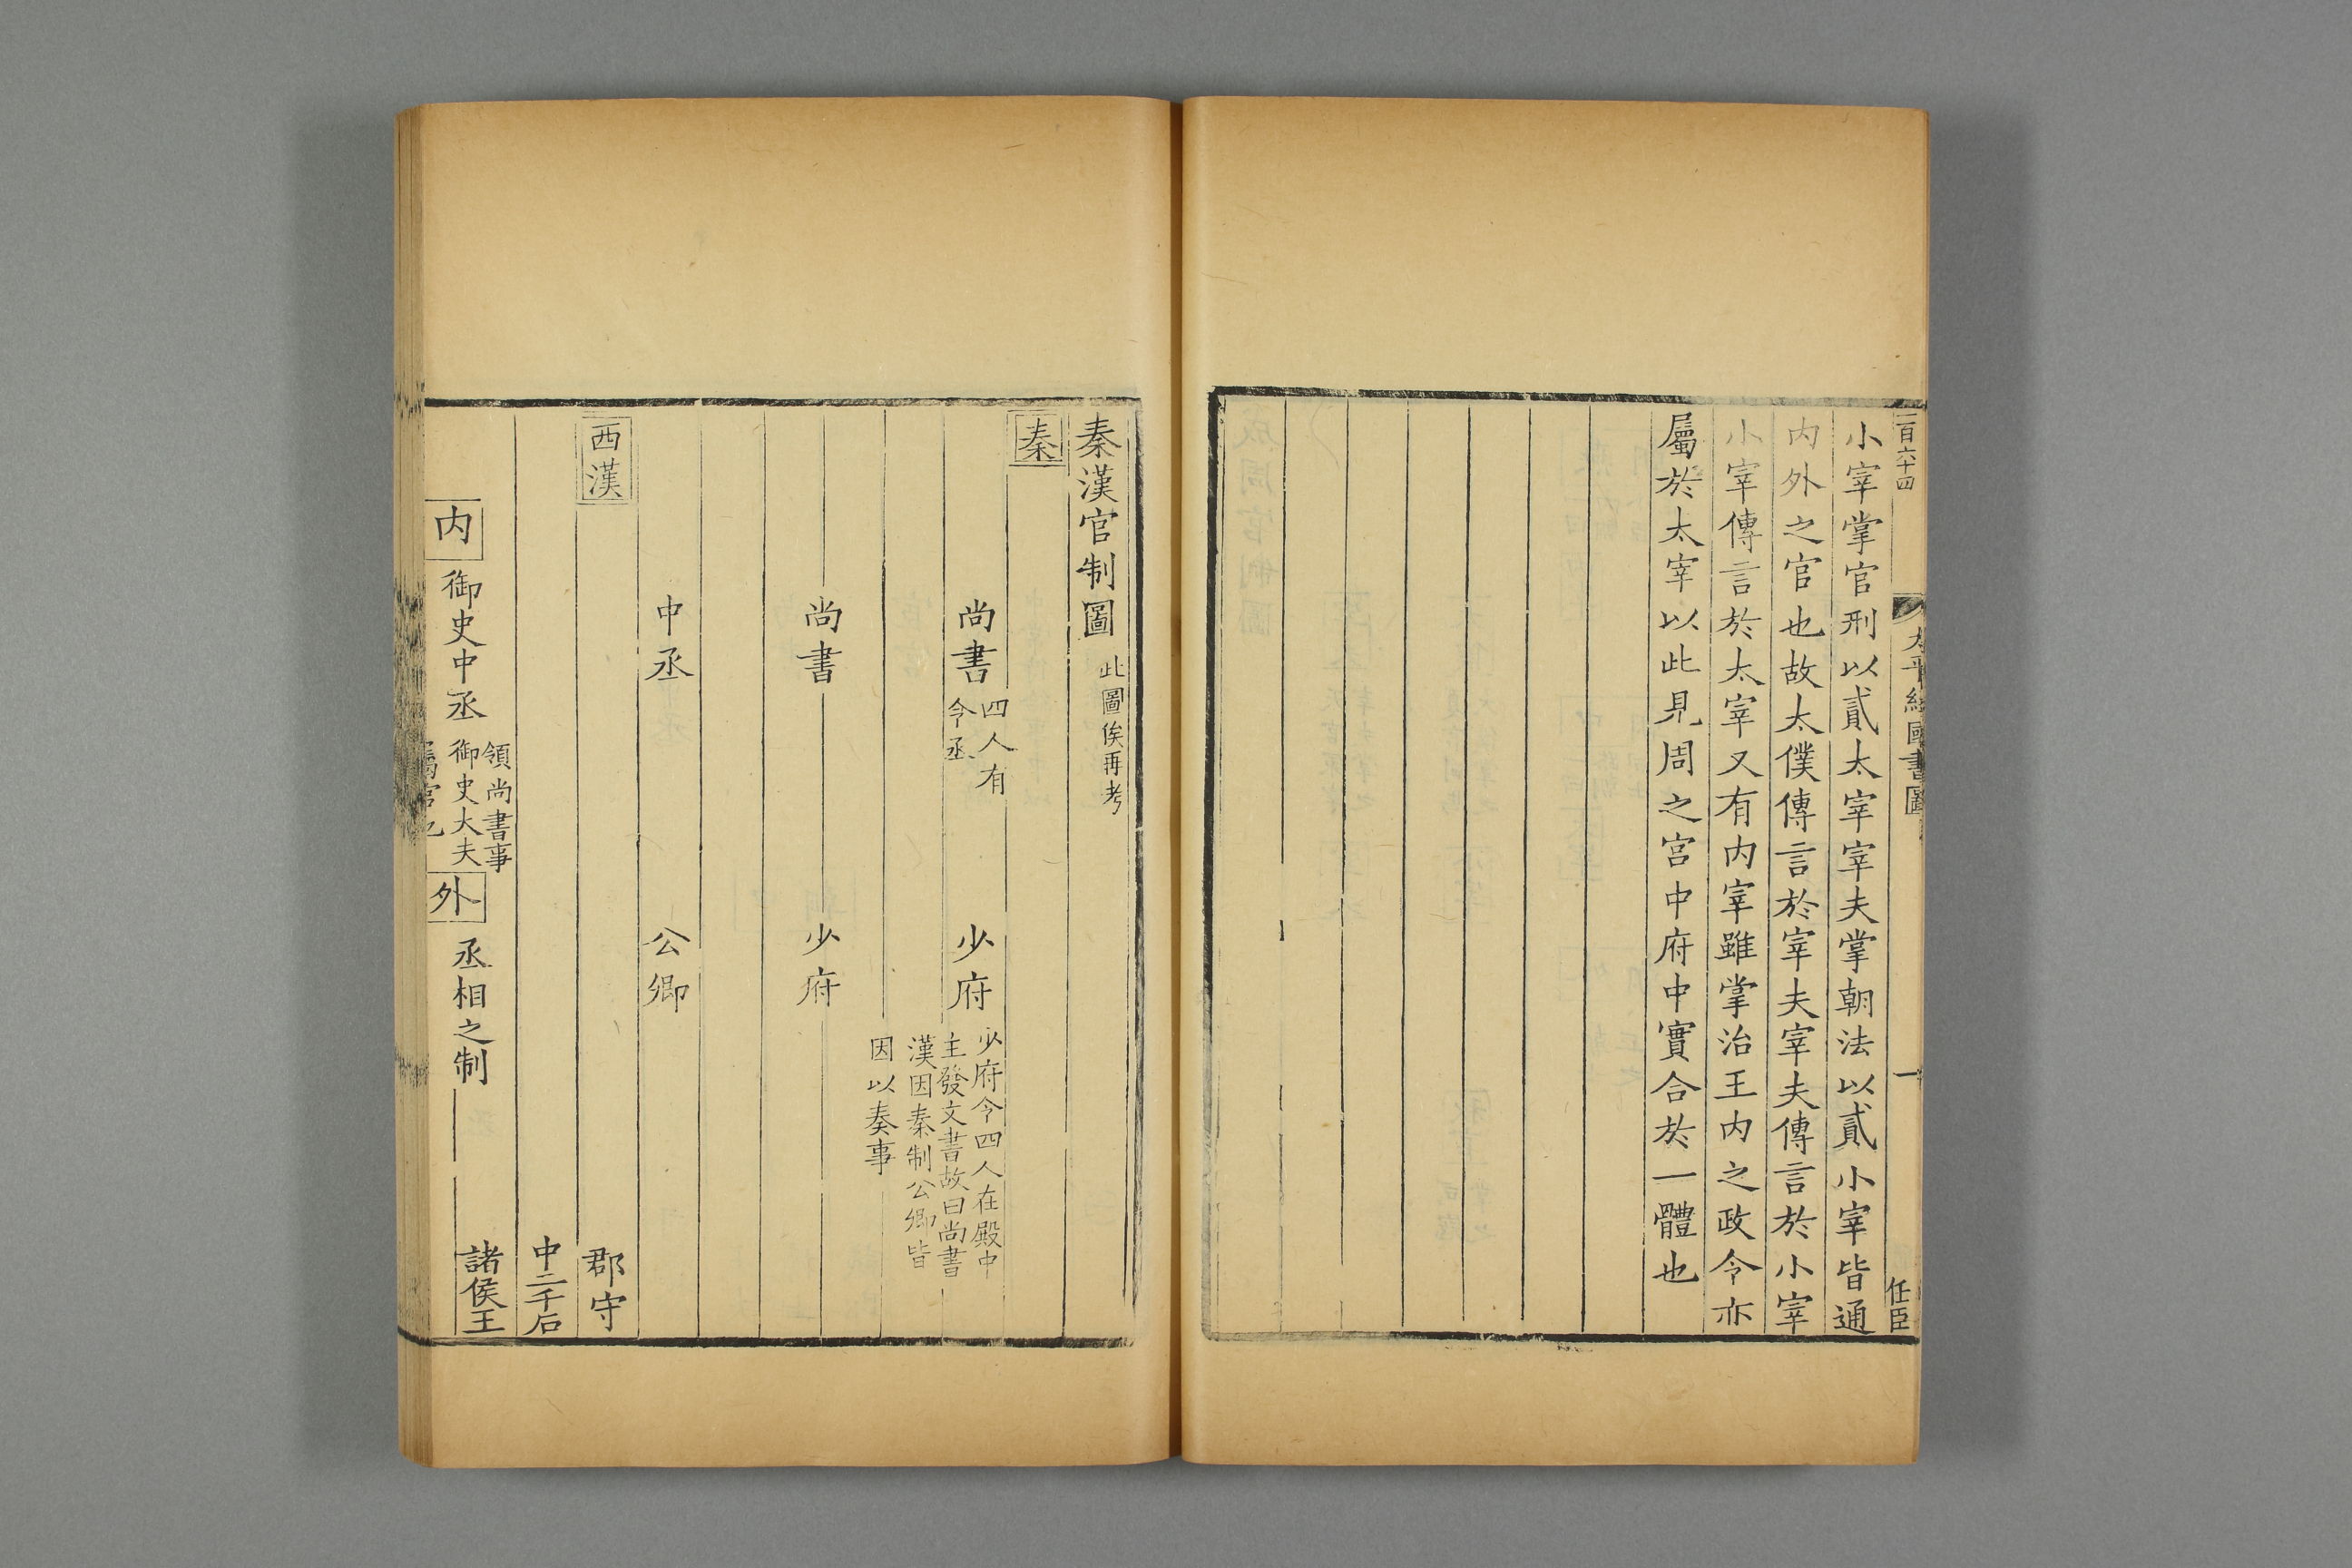 一百六十四
太平經國書圖
一
任臣
小宰掌官刑以貳太宰宰夫掌朝法以貳小宰皆通
内外之官也故太僕傳言於宰夫宰夫傳言於小宰
小宰傳言於太宰又有内宰雖掌治王内之政令亦
屬於太宰以此見周之宫中府中實合於一體也
秦漢官制圖
此圖俟再考
秦
尚書
四人有
令丞
少府
少府令四人在殿中
主發文書故曰尚書
漢因秦制公卿皆
因以奏事
尚書
少府
中丞
公卿
西漢
郡守
中二千石
内
御史中丞
領尚書事
御史大夫
屬官也
外
丞相之制
諸侯王